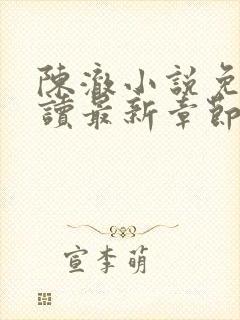 陳澈小說免
讀最新章節
宣李萌